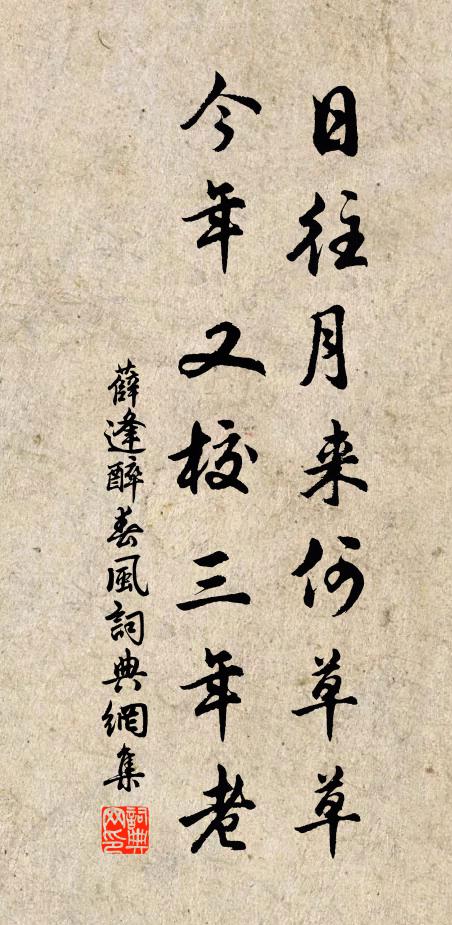 日往月来何草草
今年又校三年老
薛逢醉春風詞典網集
詞典網印